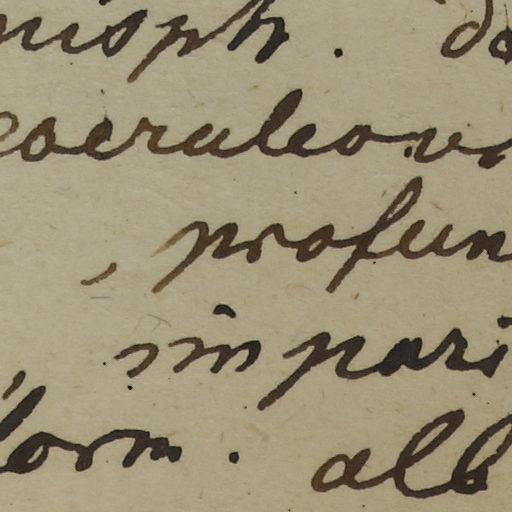 nisph. do
coeruleov
, profun
, impari
form. alb